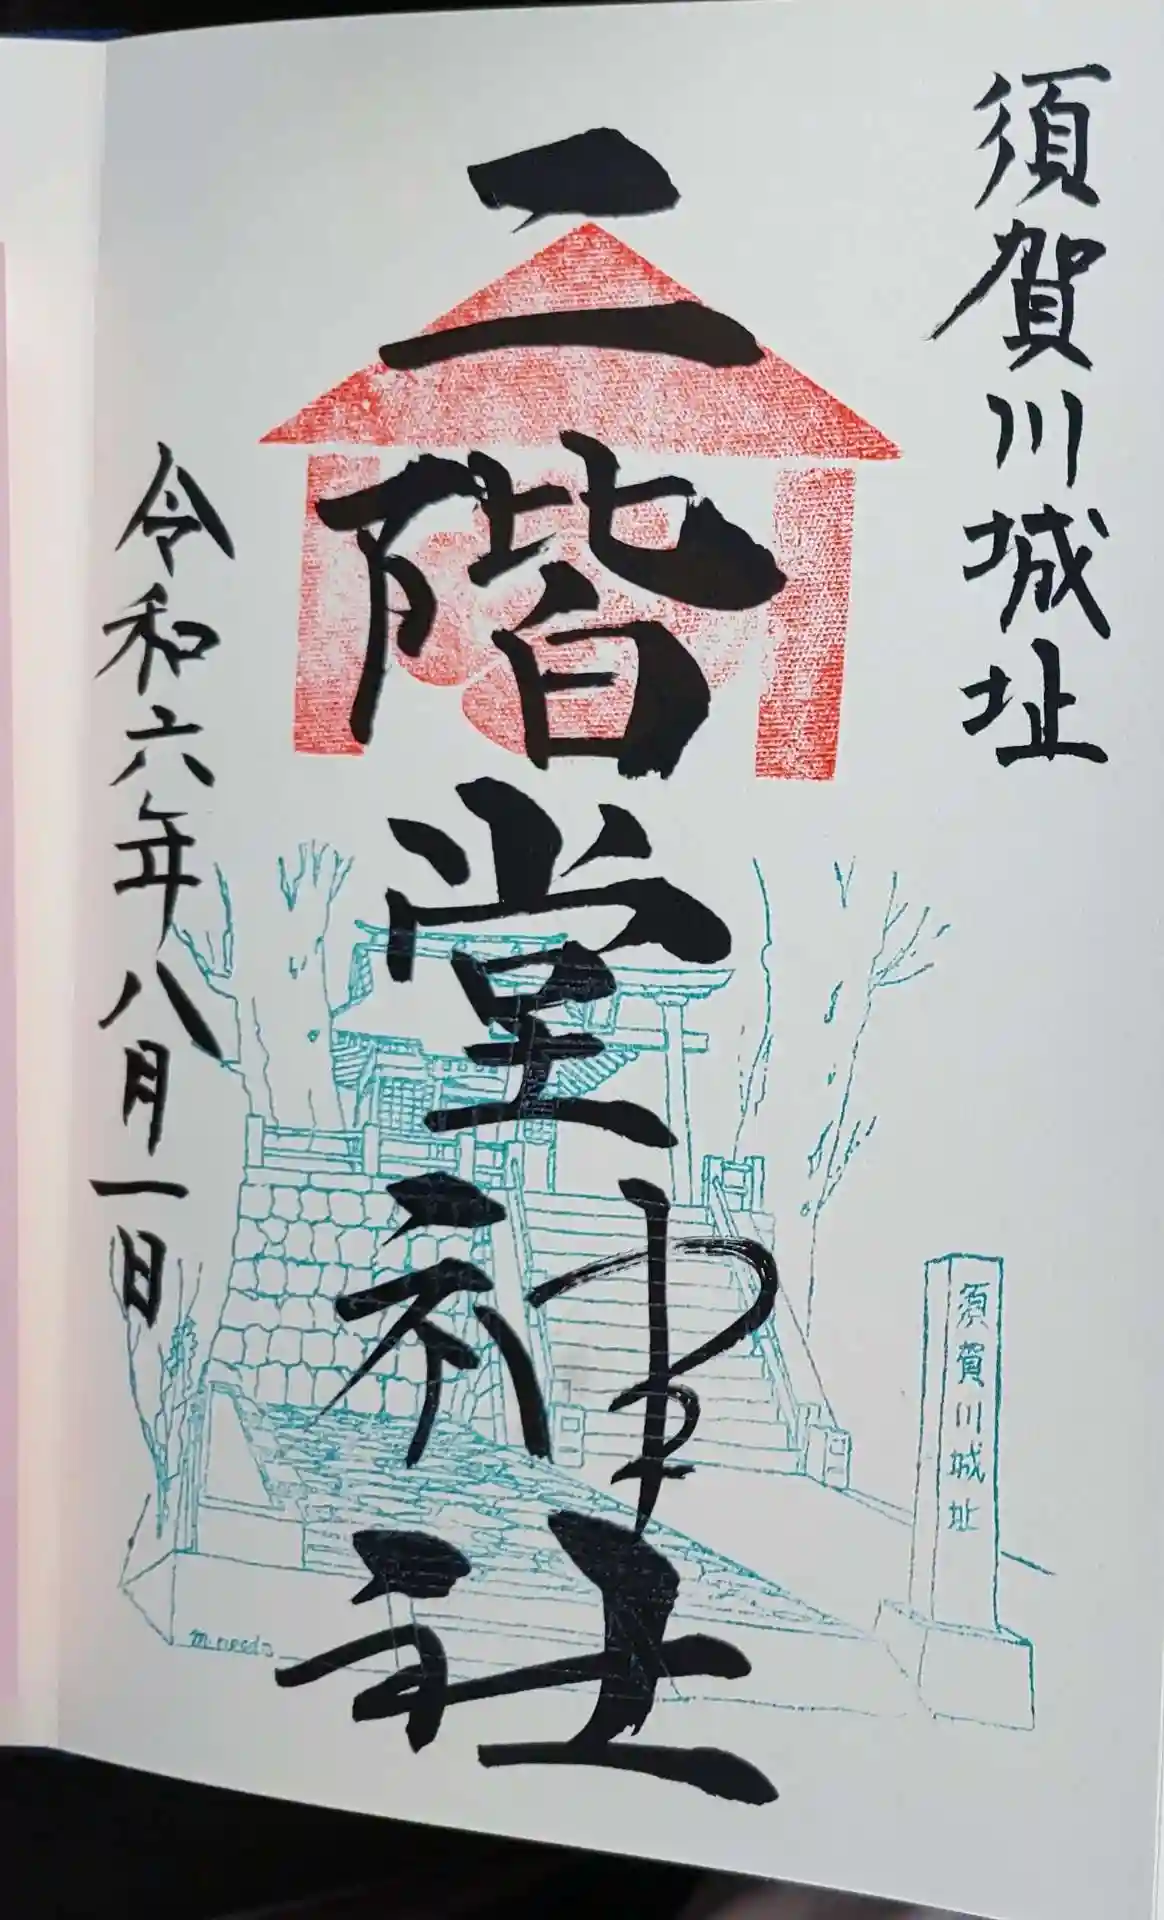 須賀川城址
二階堂神社
令和六年八月一日
須賀川城址